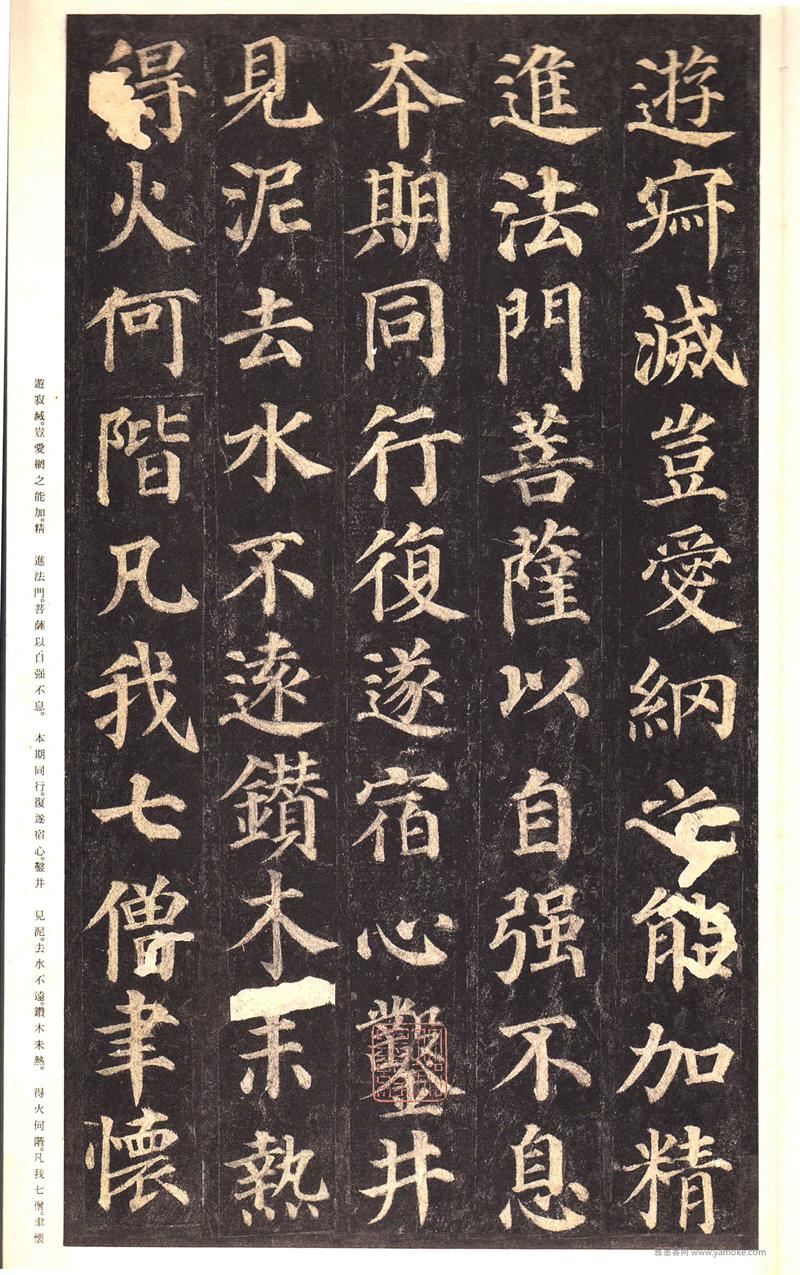 遊㝛滅豈愛網之能加精
進法門菩薩以自强不息
本期同行復遂宿心鑿井
見泥去水不遠鑽木未熱
得火何階凡我七僧聿懷
遊寂滅。豈愛網之能加。精 進法門。菩薩以自强不息。 本期同行。復遂宿心。鑿井 見泥。去水不遠。鑽木未熱。 得火何階。凡我七僧。聿懷
雅墨客网 www.yamoke.com